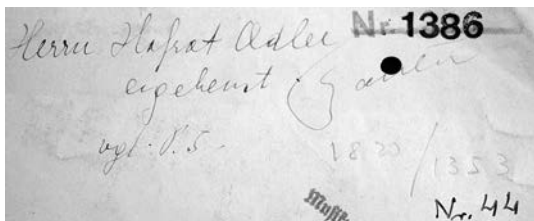 Herrn Hofrat Adler Nr. 1386
ergebenst
vgl. P.S. 1820/1353
Musik
Nr. 44